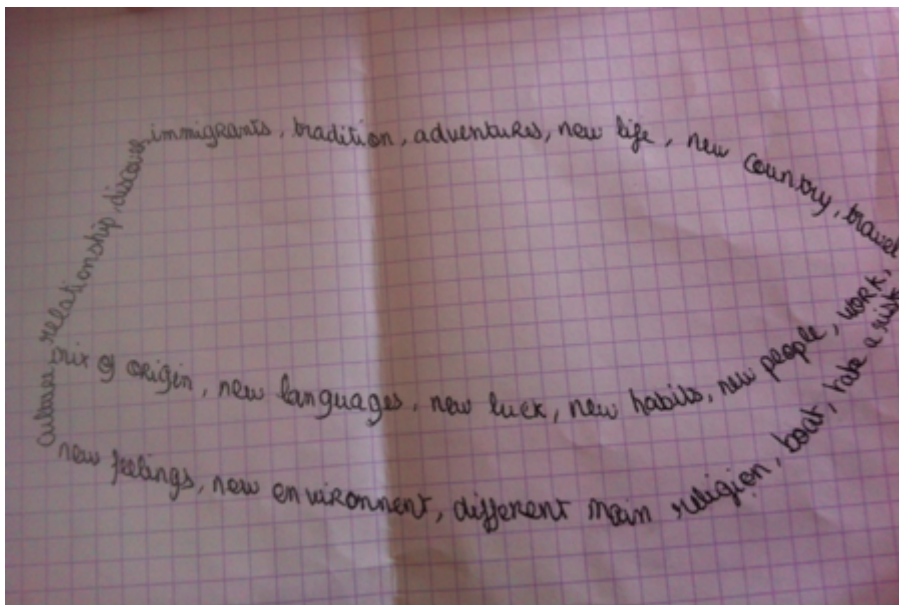 immigrants, tradition, adventures, new life, new country, travel
mix of origin, new languages, new luck, new habits, new people, work,
new feelings, new environnent, different main religion, boat, take a risk
cultures, relationship, discover